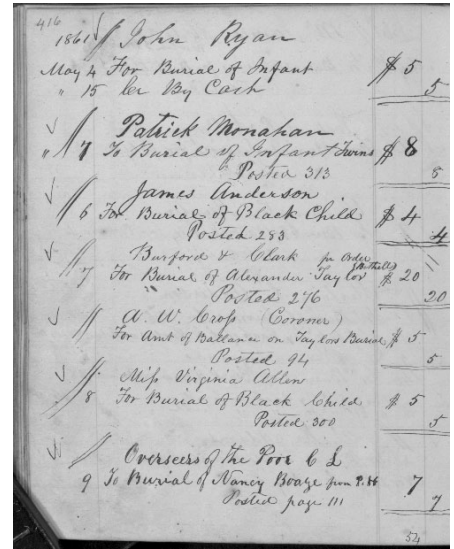 416
1861 John Ryan
May 4 For Burial of Infant $ 5
" 15 Cr By Cash 5
Patrick Monahan
" 7 To Burial of Infant Twins $ 8
Posted 313 8
James Anderson
6 For Burial of Black Child $ 4
Posted 283 4
Burford & Clark per Order
7 For Burial of Alexander Taylor $ 20
Posted 276 20
A. W. Cross (Coroner)
For Amt of Ballance on Taylors Burial $ 5
Posted 94 5
Miss Virginia Allen
8 For Burial of Black Child $ 5
Posted 300 5
Overseers of the Poor C L
9 To Burial of Nancy Boaze from P. 86 7
Posted page 111 7
54